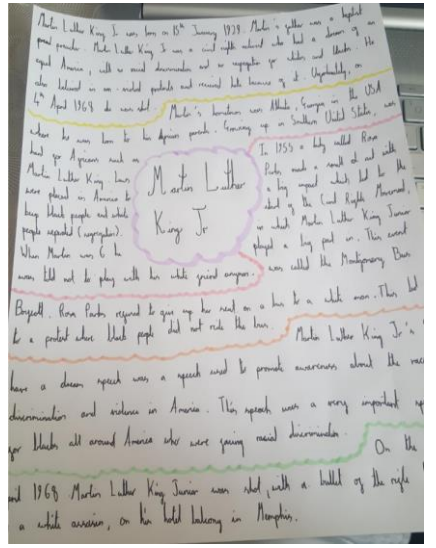 Martin Luther King Jr was born on 15th January 1929. Martin's father was a baptist
preacher. Martin Luther King Jr was a civil rights activist who had a dream of an
equal America, with no racial discrimination and no segregation for whites and blacks. He
also believed in non-violent protests and received hate because of it. Unfortunately, on
4th April 1968 he was shot.
Martin's hometown was Atlanta, Georgia in the USA
where he was born to his African parents. Growing up in Southern United States, was
hard for Africans such as
Martin Luther King. Laws
were placed in America to
keep black people and white
people separated (segregation).
When Martin was 6 he
was told not to play with his white friend anymore.
Martin Luther
King Jr
In 1955 a lady called Rosa
Parks made a out with
a big impact which led to the
start of the Civil Rights Movement,
in which Martin Luther King Junior
played a big part in. This event
was called the Montgomery Bus
Boycott. Rosa Parks refused to give up her seat on a bus to a white man. This led
to a protest where black people did not ride the bus.
Martin Luther King Jr's I
have a dream speech was a speech used to promote awareness about the
discrimination and violence in America. This speech was a very important
for blacks all around America who were facing racial discrimination.
On the
1968 Martin Luther King Junior was shot, with a bullet of the rifle
a white assassin, on his hotel balcony in Memphis.